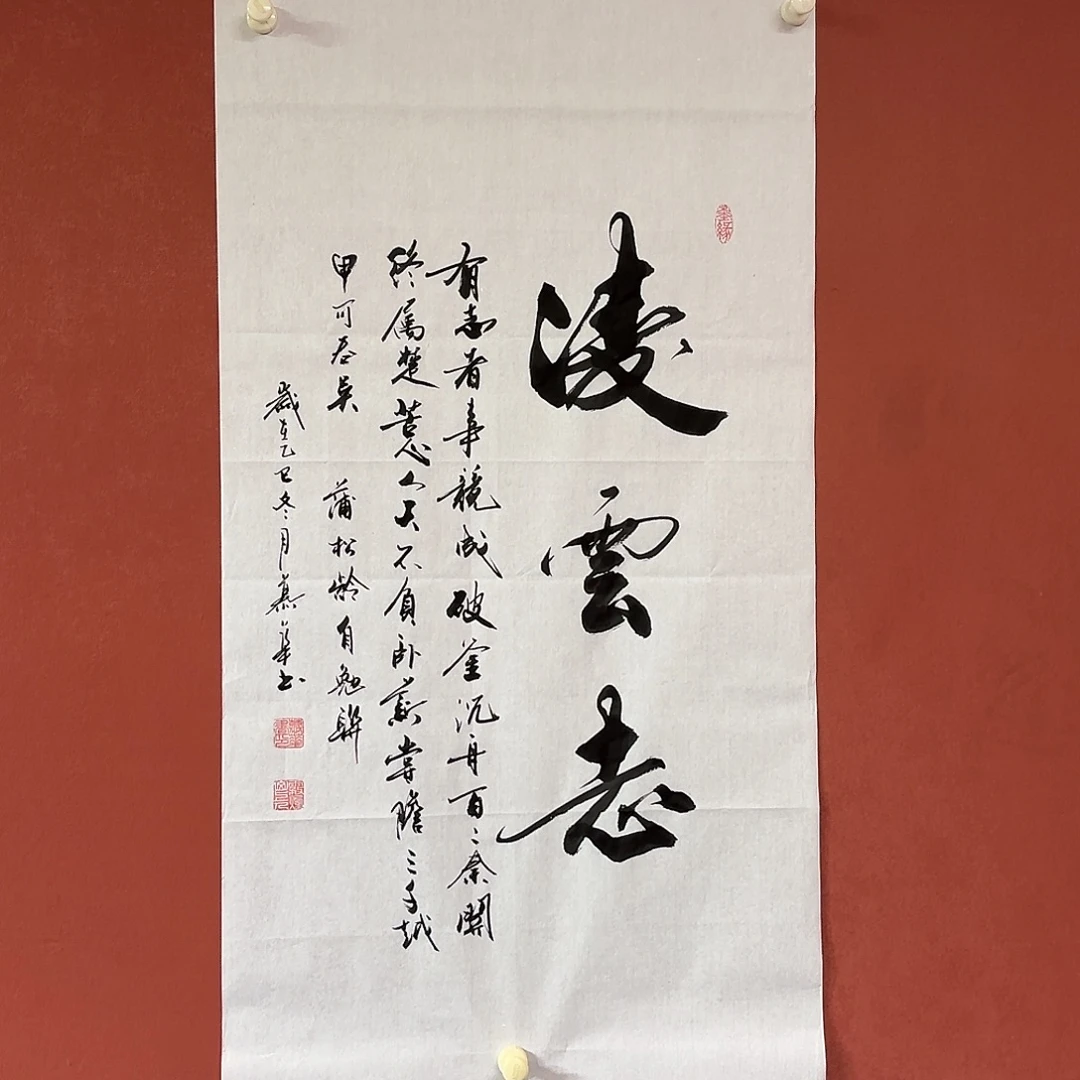 凌雲志
有志者事競成破釜沉舟百二秦關
終属楚苦心人天不負卧薪嘗膽三千越
甲可吞吴 蒲松齡自勉聯
歲在乙巳冬月慕華书
墨緣